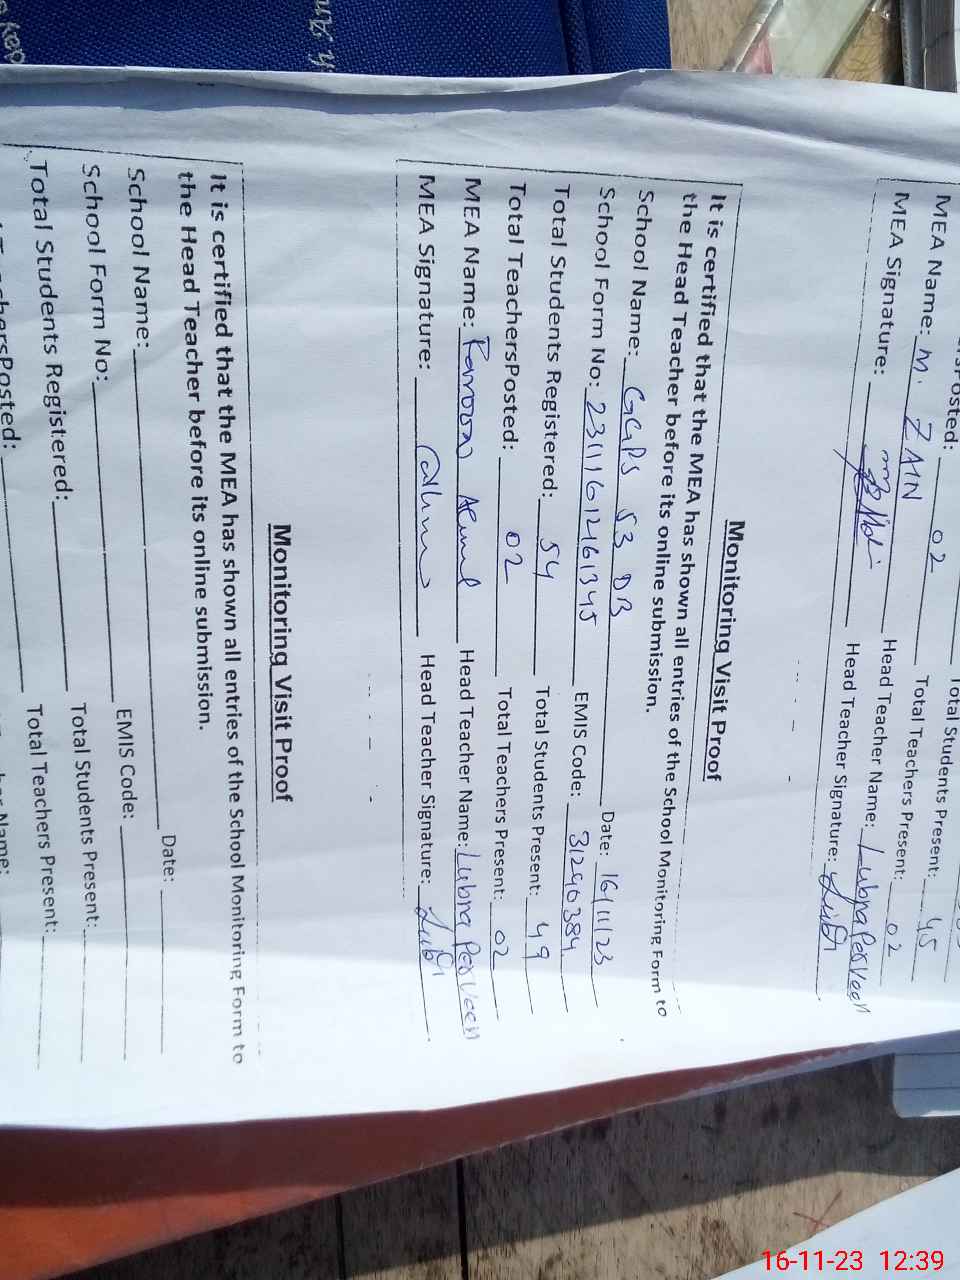 Posted: 02
Total Students Present: 45
MEA Name: M. ZAIN
Total Teachers Present: 02
MEA Signature:
Head Teacher Name: Lubna Perveen
Head Teacher Signature:
Monitoring Visit Proof
It is certified that the MEA has shown all entries of the School Monitoring Form to
the Head Teacher before its online submission.
School Name: GGPS 53 DB Date: 16/11/23
School Form No: 231116124161345 EMIS Code: 31240384
Total Students Registered: 54 Total Students Present: 49
Total TeachersPosted: 02 Total Teachers Present: 02
MEA Name: Head Teacher Name: Lubna Perveen
MEA Signature: Head Teacher Signature:
Monitoring Visit Proof
It is certified that the MEA has shown all entries of the School Monitoring Form to
the Head Teacher before its online submission.
School Name: Date:
School Form No: EMIS Code:
Total Students Registered: Total Students Present:
Posted: Total Teachers Present:
16-11-23 12:39